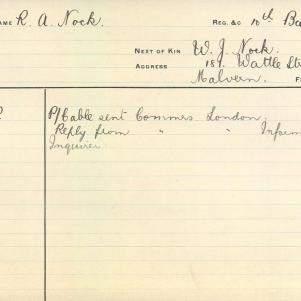 NAME R. A. Nock. REG. &C 10th Ba
NEXT OF KIN W. J. Nock.
ADDRESS 187. Wattle Str
Malvern.
P/Cable sent Commrs. London.
Reply from " "
Inquirer